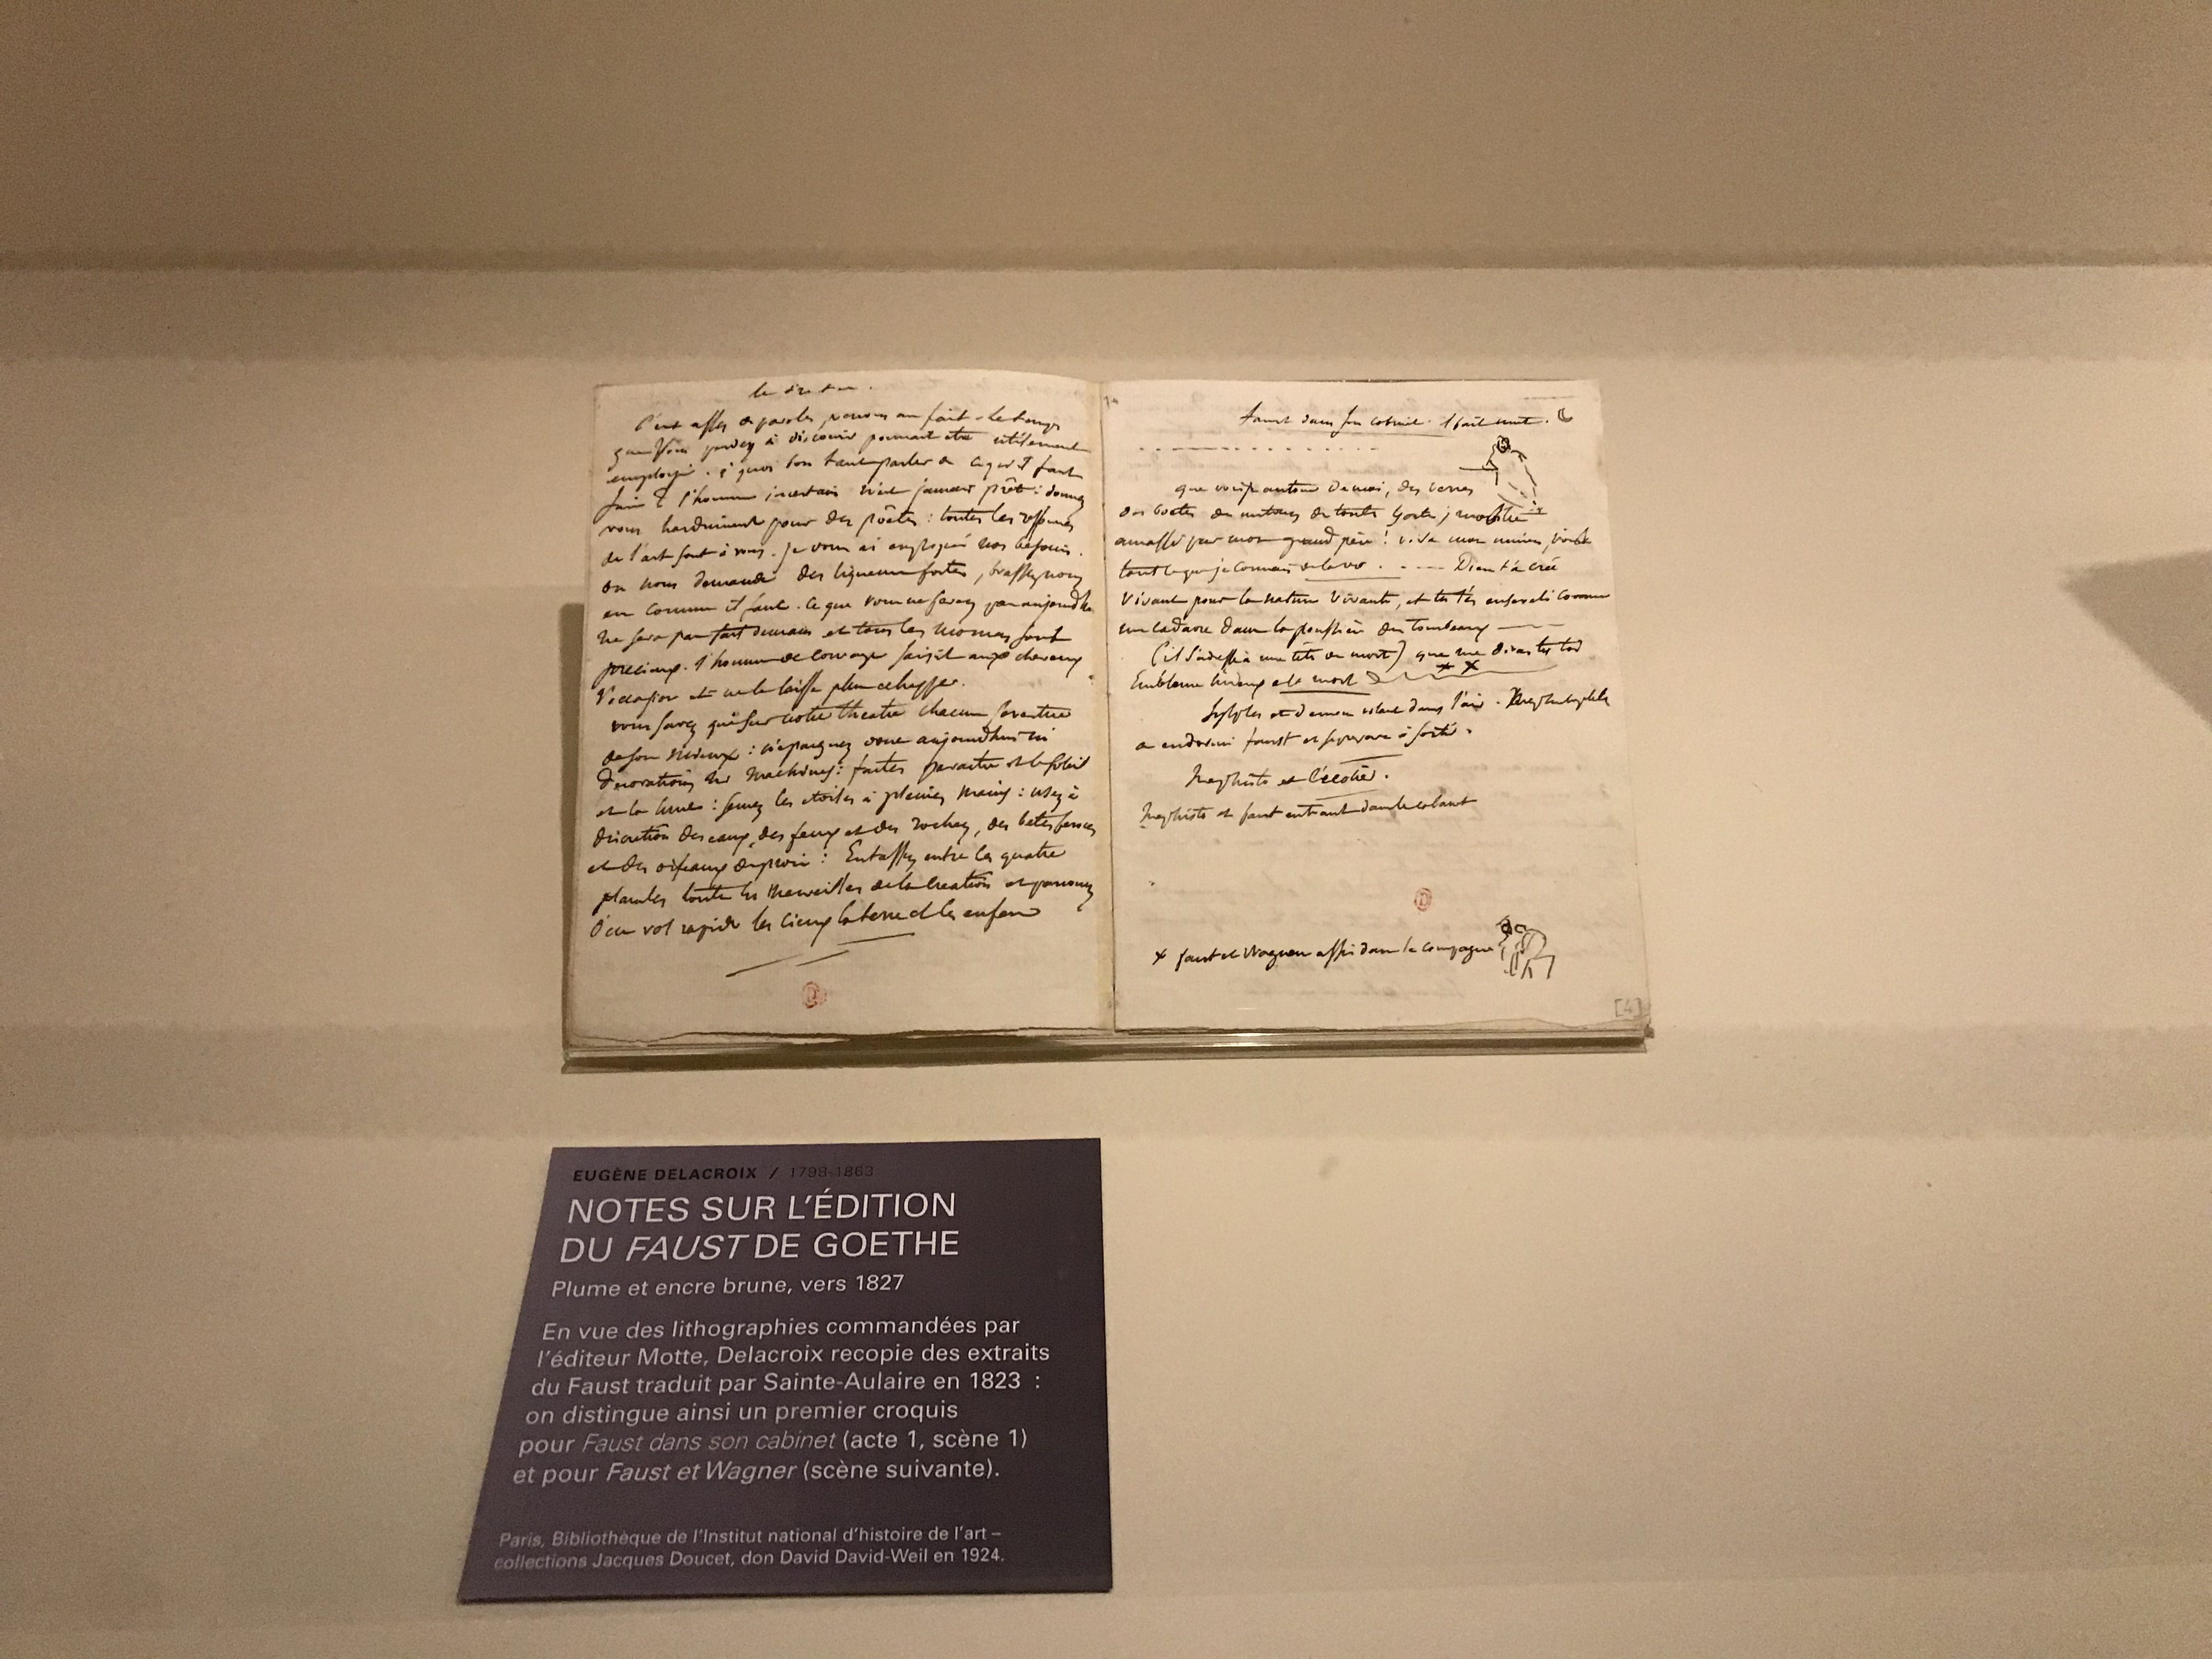 le directeur.
C'est assez de paroles, venons au fait. Le temps
que vous perdez à discourir pourrait être utilement
employé. à quoi bon tant parler de ce qu'il faut
faire ? l'homme incertain n'est jamais prêt : donnez
vous hardiment pour des poëtes : toutes les
de l'art sont à vous. je vous ai expliqué nos besoins.
on nous demande des liqueurs fortes, brassez nous
en comme il faut. ce que vous ne ferez pas aujourd'hui
ne sera pas fait demain et tous les momens sont
precieux. l'homme de courage saisit aux cheveux
l'occasion et ne la laisse plus echapper.
vous savez que sur notre theatre chacun s'evertue
de son mieux : n'épargnez donc aujourd'hui ni
décorations ni machines : faites paraitre et le soleil
et la lune : semez les etoiles à pleines mains : usez à
discretion des eaux, des feux et des rochers, des betes feroces
et des oiseaux de proie : Entassez entre les quatre
planches toutes les merveilles de la creation et parcourez
d'un vol rapide les cieux la terre et les enfers
faust dans son cabinet. il fait nuit.
que vois-je autour de moi, des verres
des boetes des de toute sorte,
amassé par mon grand père ! voila mon univers, voila
tout ce que je connais de la vie. . - - - Dieu t'a créé
vivant pour la nature vivante, et tu t'es enseveli comme
un cadavre dans la poussière des tombeaux
(il s'adresse à une tête de mort) que me dirais tu toi
Emblème hideux de la mort x x
Sylphes et demons volant dans l'air. Mephistopheles
a endormi faust et se prepare à sortir.
Mephisto et l'écolier.
Mephisto et faust entrant dans le cabaret
x faust et Wagner assis dans la campagne
[4]
EUGÈNE DELACROIX / 1798-1863
NOTES SUR L'ÉDITION
DU FAUST DE GOETHE
Plume et encre brune, vers 1827
En vue des lithographies commandées par
l'éditeur Motte, Delacroix recopie des extraits
du Faust traduit par Sainte-Aulaire en 1823 :
on distingue ainsi un premier croquis
pour Faust dans son cabinet (acte 1, scène 1)
et pour Faust et Wagner (scène suivante).
Paris, Bibliothèque de l'Institut national d'histoire de l'art –
collections Jacques Doucet, don David David-Weil en 1924.